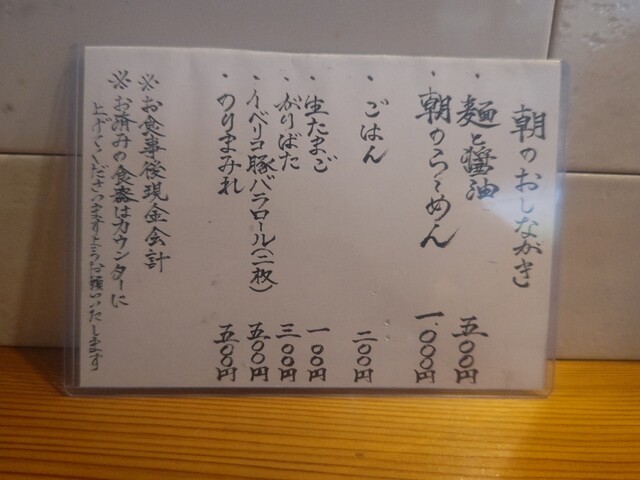 朝のおしながき
・麺と醤油 五〇〇円
・朝のらーめん 一、〇〇〇円
・ごはん 二〇〇円
・生たまご 一〇〇円
・がりばた 三〇〇円
・イベリコ豚バラロール(二枚) 五〇〇円
・のりまみれ 五〇〇円
※お食事後現金会計
※お済みの食器はカウンターに
上げてくださいますようお願いいたします